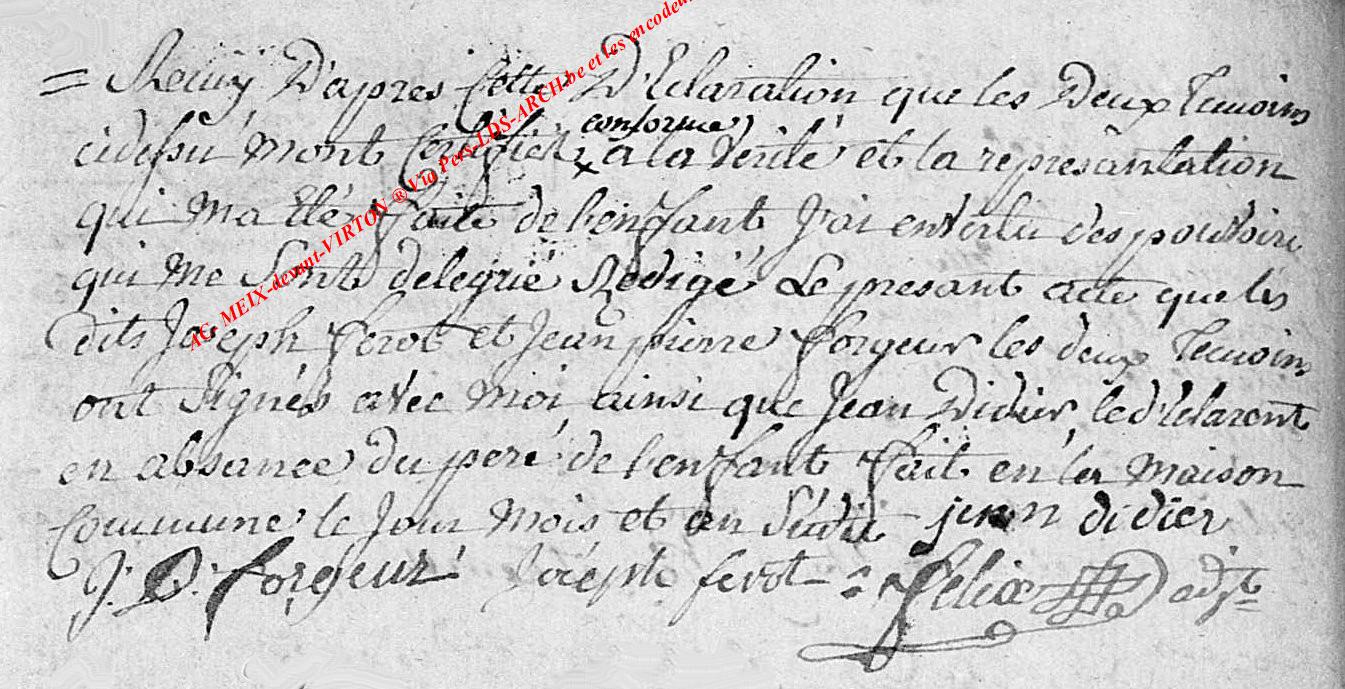 = Remy D'apres Cette D'Eclaration que les Deux Temoins
cidessu mont Certifiér conforme a la Verité et la represantation
qui Ma Eté faite de lenffant J'ai en Vertu des pouvoire
qui Me Sont delegué Redigé Le presant acte que les
dits Joseph ferot et Jean pierre forgeur les deux Temoins
ont Signés avec Moi ainsi que Jean Didier, le d'Eclarent
en absance du peré de lenffant fait en la Maison
Commune le Jour Mois et an Susdit jean didier
J. P. forgeur joseph ferot : Felix adjt
AC MEIX-devant-VIRTON ® Via Pers-LDS-ARCH.be et les encodeu